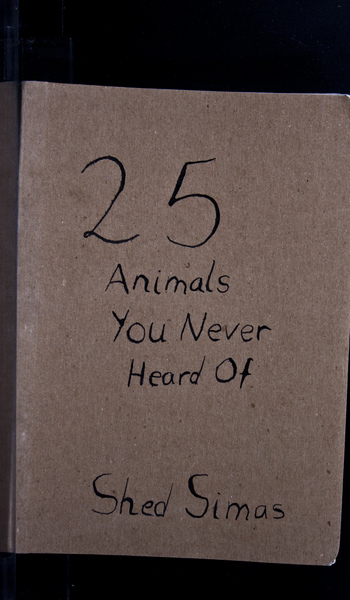 25
Animals
You Never
Heard Of
Shed Simas